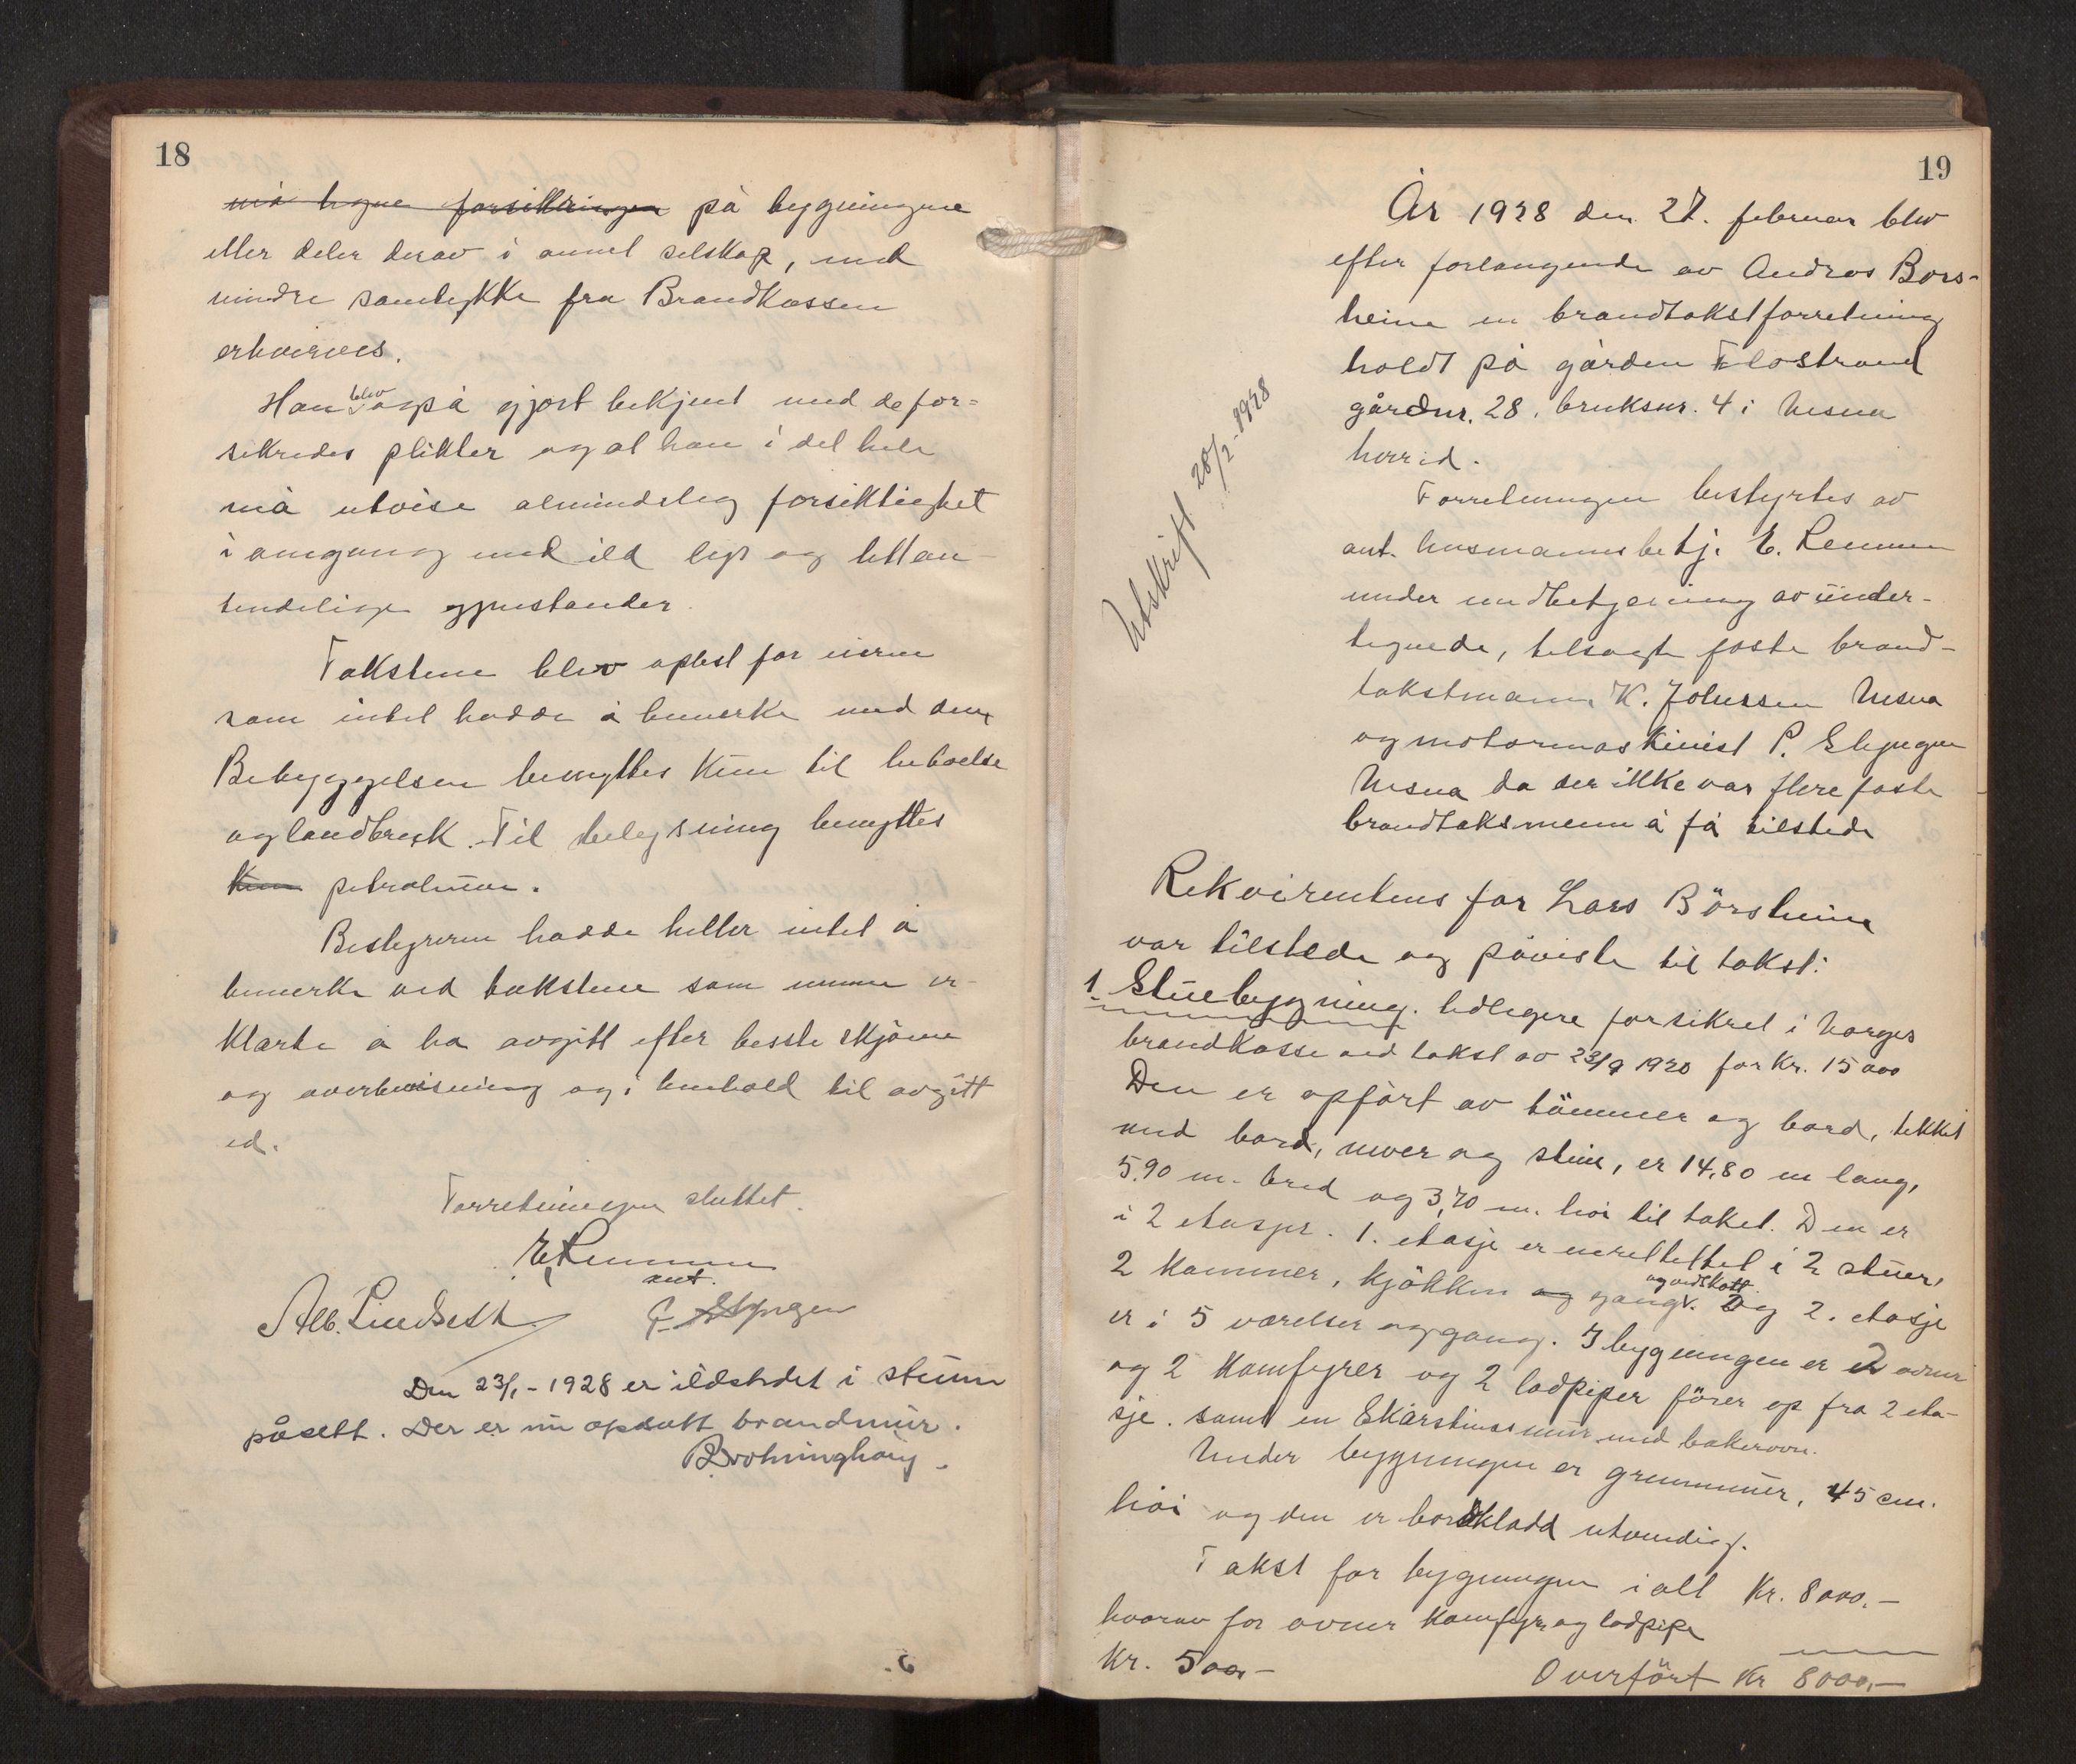 18
må tegne forsikringen på bygningene
eller deler derav i annet selskap, med
mindre samtykke fra Brandkassen
erhverves.
Han blev også gjort bekjent med de for-
sikredes plikter og at han i det hele
må utvise almindelig forsiktighet
i omgang med ild lys og lettan-
tendelige gjenstander.
Takstene blev oplest for eieren
som intet hadde å bemerke med dem
Bebyggelsen benyttes kun til beboelse
og landbruk. Til belysning benyttes
kun petroleum.
Bestyreren hadde heller intet å
bemerke ved takstene som mennene er-
klærte å ha avgitt efter beste skjønn
og overbevisning og i henhold til avgitt
ed.
Forretningen sluttet.
E. Remmen
ant.
Alb. Lindseth
Den 23/1 - 1928 er ildstedet i stuen
påsett. Der er nu opsatt brandmur.
19
År 1928 den 27. februar blev
efter forlangende av Andreas Bors-
heine en brandtakstforretning
holdt på gården Flostrand
gårdnr. 28, bruksnr. 4 i Nesna
herred.
Forretningen bestyrtes av
ant. lensmannsbetj. E. Remmen
under medbetjening av under-
tegnede, tilsagte faste brand-
takstmann K. Johnssen Nesna
og motormaskinist P. Styngen
Nesna da der ikke var flere faste
brandtaksmenn å få tilstede
Utskrift 28/2-1928
Rekvirentens far Lars Börsheine
var tilstede og påviste til takst:
1. Stuebygning. Tidligere forsikret i Norges
brandkasse ved takst av 23/9 1920 for Kr. 15000
Den er opført av tömmer og bord, tekket
med bord, never og stein, er 14,80 m lang,
5.90 m. bred og 3,70 m. høi til taket. Den er
i 2 etasjer. 1. etasje er innrettettet i 2 stuer,
2 kammer, kjökken og gang og vedskott. Og 2. etasje
er i 5 værelser og gang. I bygningen er 2 ovner
og 2 komfyrer og 2 ladpiper fører op fra 2 eta-
sje. samt en Skårstinsmur med bakerovn.
Under bygningen er grunnmur, 45 cm.
høi og den er bordkladd utvendig.
Takst for bygningen i alt Kr. 8000.-
hvorav for ovner komfyr og ladpipe
Kr. 500.-
Overfört Kr 8000,-